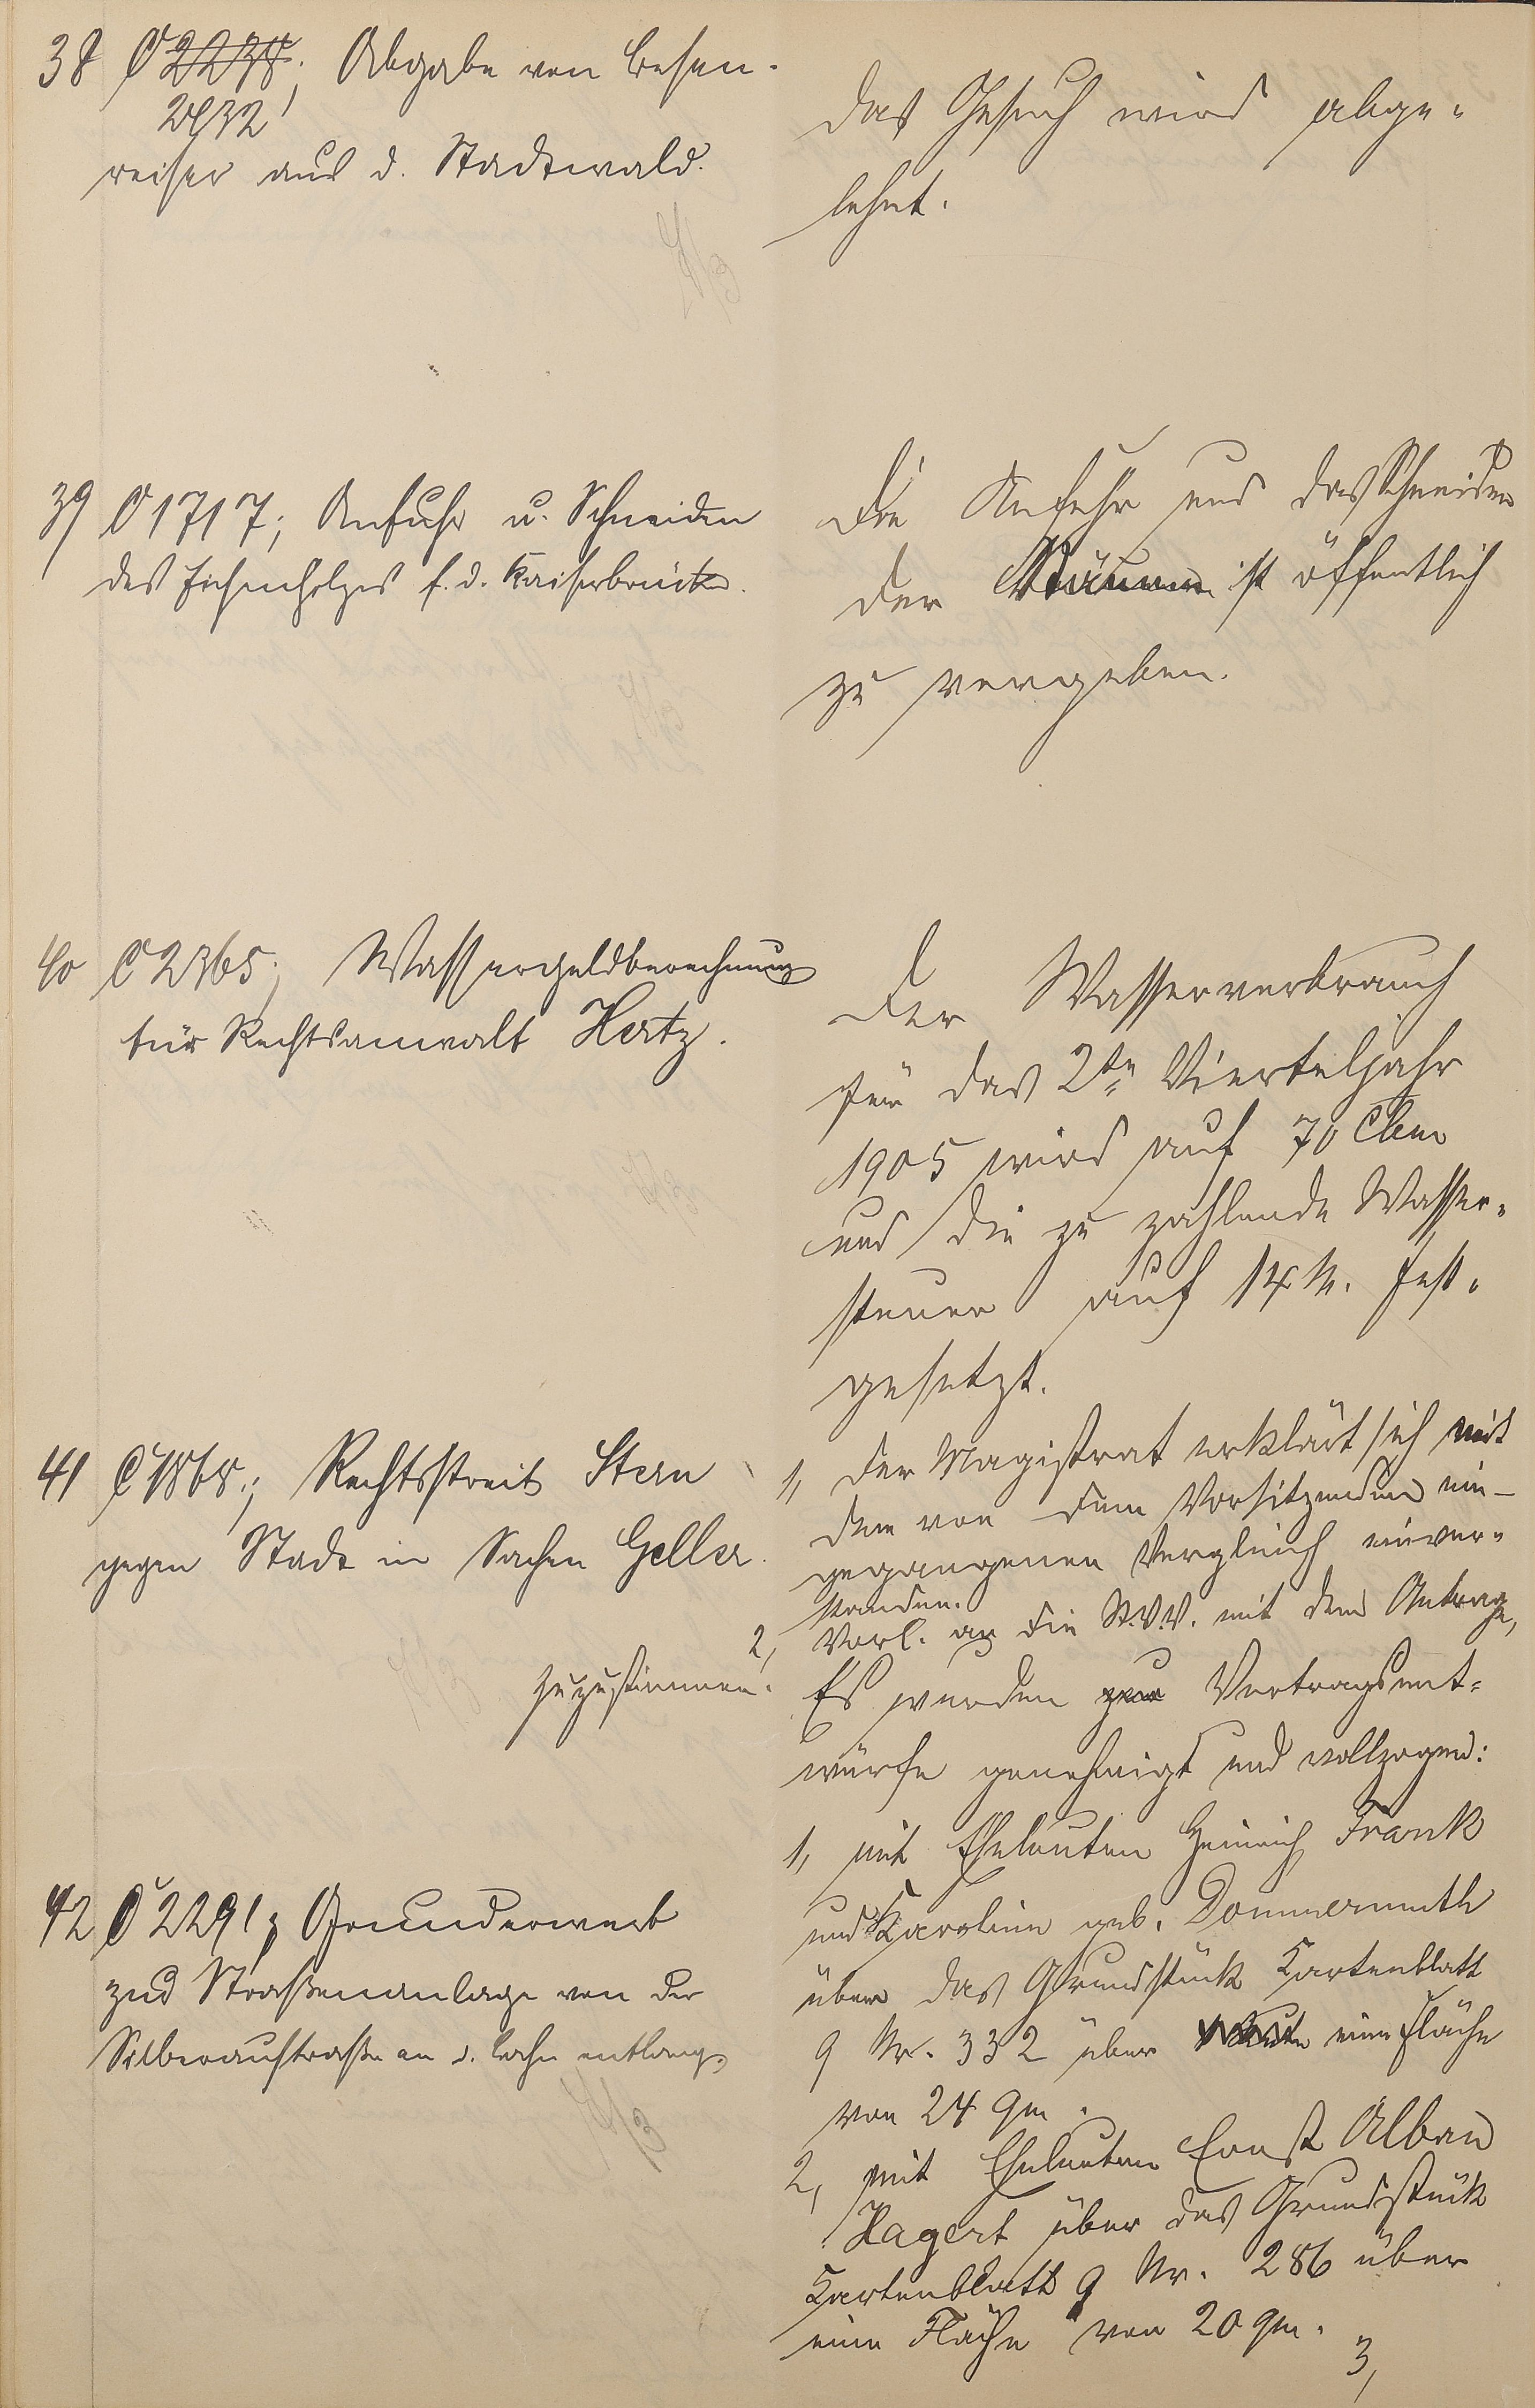 38 C 2278; Abgabe von Besen-
2432
reiser aus d. Stadtwald.
Das Gesuch wird abge-
lehnt.
39 C 1717; Anfuhr u. Schneiden
des Eichenholzes f. d. Kaiserbrücke.
Die Anfuhr und das Schneiden
der ist öffentlich
zu vergeben.
40 C 2365; Wassergeldberechnung
für Rechtsanwalt Hertz.
Der Wasserverbrauch
für das 2te Vierteljahr
1905 wird auf 70 Cbm
und die zu zahlende Wasser-
steuer auf 14 M. fest-
gesetzt.
41 C 1868; Rechtsstreit Stern
gegen Stadt in Sachen Geller.
1, Der Magistrat erklärt sich mit
dem von dem Vorsitzenden ein-
gegangenen Vergleich einver-
standen.
2, Vorl. an die St.V.V. mit dem Antrage,
zuzustimmen.
42 C 2291; Grunderwerb
zur Straßenanlage von der
Silberaustraße an d. Lahn entlang.
Es wurden Vertragsent-
würfe genehmigt und vollzogen:
1, mit Eheleuten Heinrich Frank
und Karoline geb. Dommermuth
über das Grundstück Kartenblatt
9 Nr. 332 über eine Fläche
von 24 qm.
2, mit Eheleuten Ernst Alban
Hagert über das Grundstück
Kartenblatt 9 Nr. 286 über
eine Fläche von 20 qm.
3,